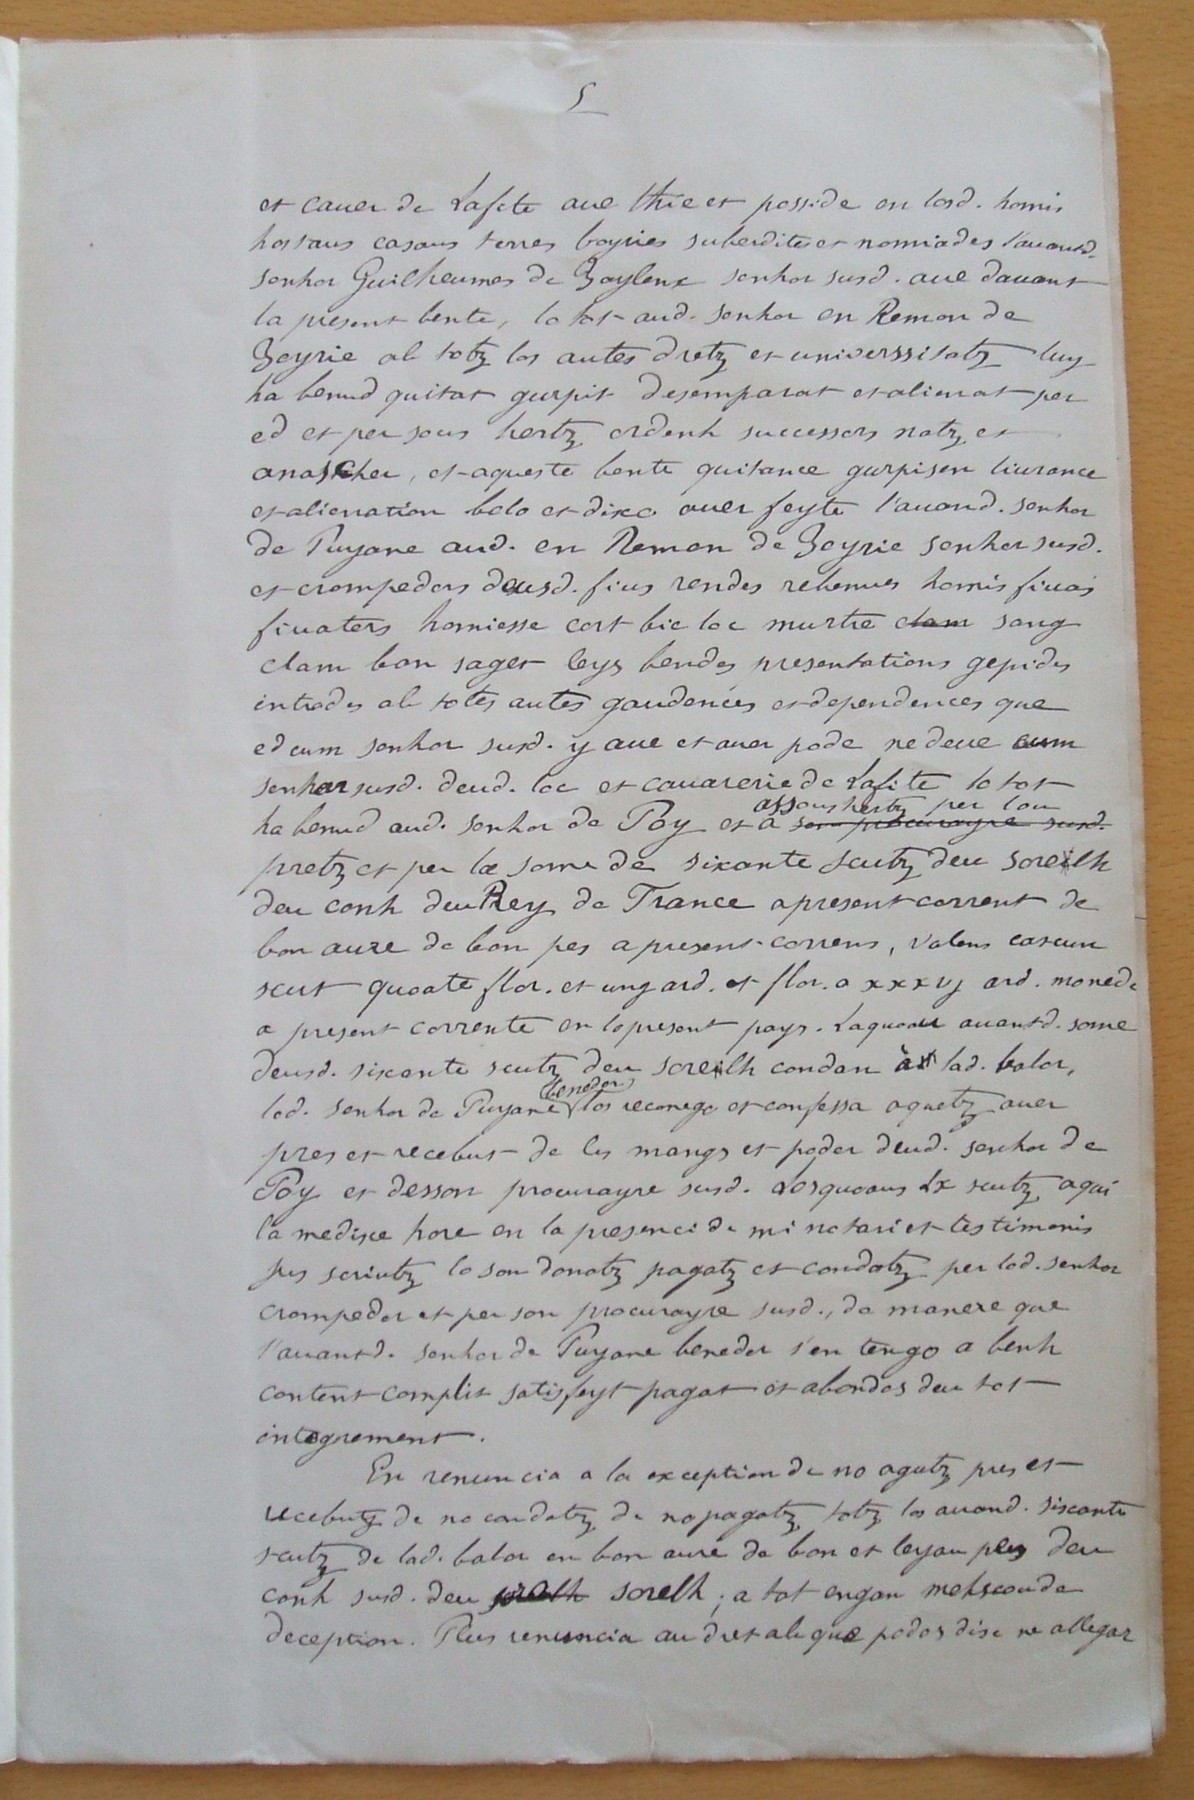 5
et cauer de Lafite aue thie et posside en losd. homis
hostaus casaus terres boyries suberdites et nomiades l'auantd.
senhor Guilheumes de Baylenx senhor susd. aue dauant
la present bente, lo tot aud. senhor en Remon de
Beyrie ab totz los autes dretz et universsitatz luy
ha benud quitat gurpit desemparat et alienat per
ed et per sous hertz, ordenh successors natz et
anascher, et aqueste bente quitance gurpisen liurance
et alienation bolo et dixo auer feyte l'auand. senhor
de Puyane aud. en Remon de Beyrie senhor susd.
et crompedors deusd. fius rendes rebenues homis fiuas
fiuaters homiesse cort bic loc murtre clam sang
clam ban saget leys bendes presentations gepides
intrades ab totes autes gaudences et dependences que
ed cum senhor susd. y aue et auer pode ne deue cum
senhor susd. deud. loc et cauarerie de Lafite lo tot
ha benud aud. senhor de Poy et a assous hertz per lou son procurayre susd.
pretz et per la some de sixante scutz deu soreilh
deu conh deu Rey de France apresent corrent de
bon aure de bon pes apresent correns, valens cascun
scut quoate flor. et ung ard. et flor. a xxxvj ard. monede
a present corrente en lo present pays. Laquoau auantd. some
deusd. sixante scutz deu soreilh condan à lad. balor,
lod. senhor de Puyane benedor los reconego et confessa aquetz auer
pres et recebut de les mangs et poder deud. senhor de
Poy et desson procurayre susd. Losquoaus Lx scutz aqui
la medixe hore en la presenci de mi notari et testimonis
jus scriutz lo son donatz pagatz et condatz per lod. senhor
crompedor et per son procurayre susd., de manere que
l'auantd. senhor de Puyane benedor s'en tengo a benh
content complit satisfeyt pagat et abondos deu tot
integrement.
En renuncia a la exception de no agutz pres et
recebutz de no condatz, de no pagatz, totz los auand. sixcante
scutz de lad. balor en bon aure de bon et leyau pes deu
conh susd. deu sorelh sorelh; a tot engan mehsconde
deception. Plus renuncia au dret ab que podos dise ne allegar